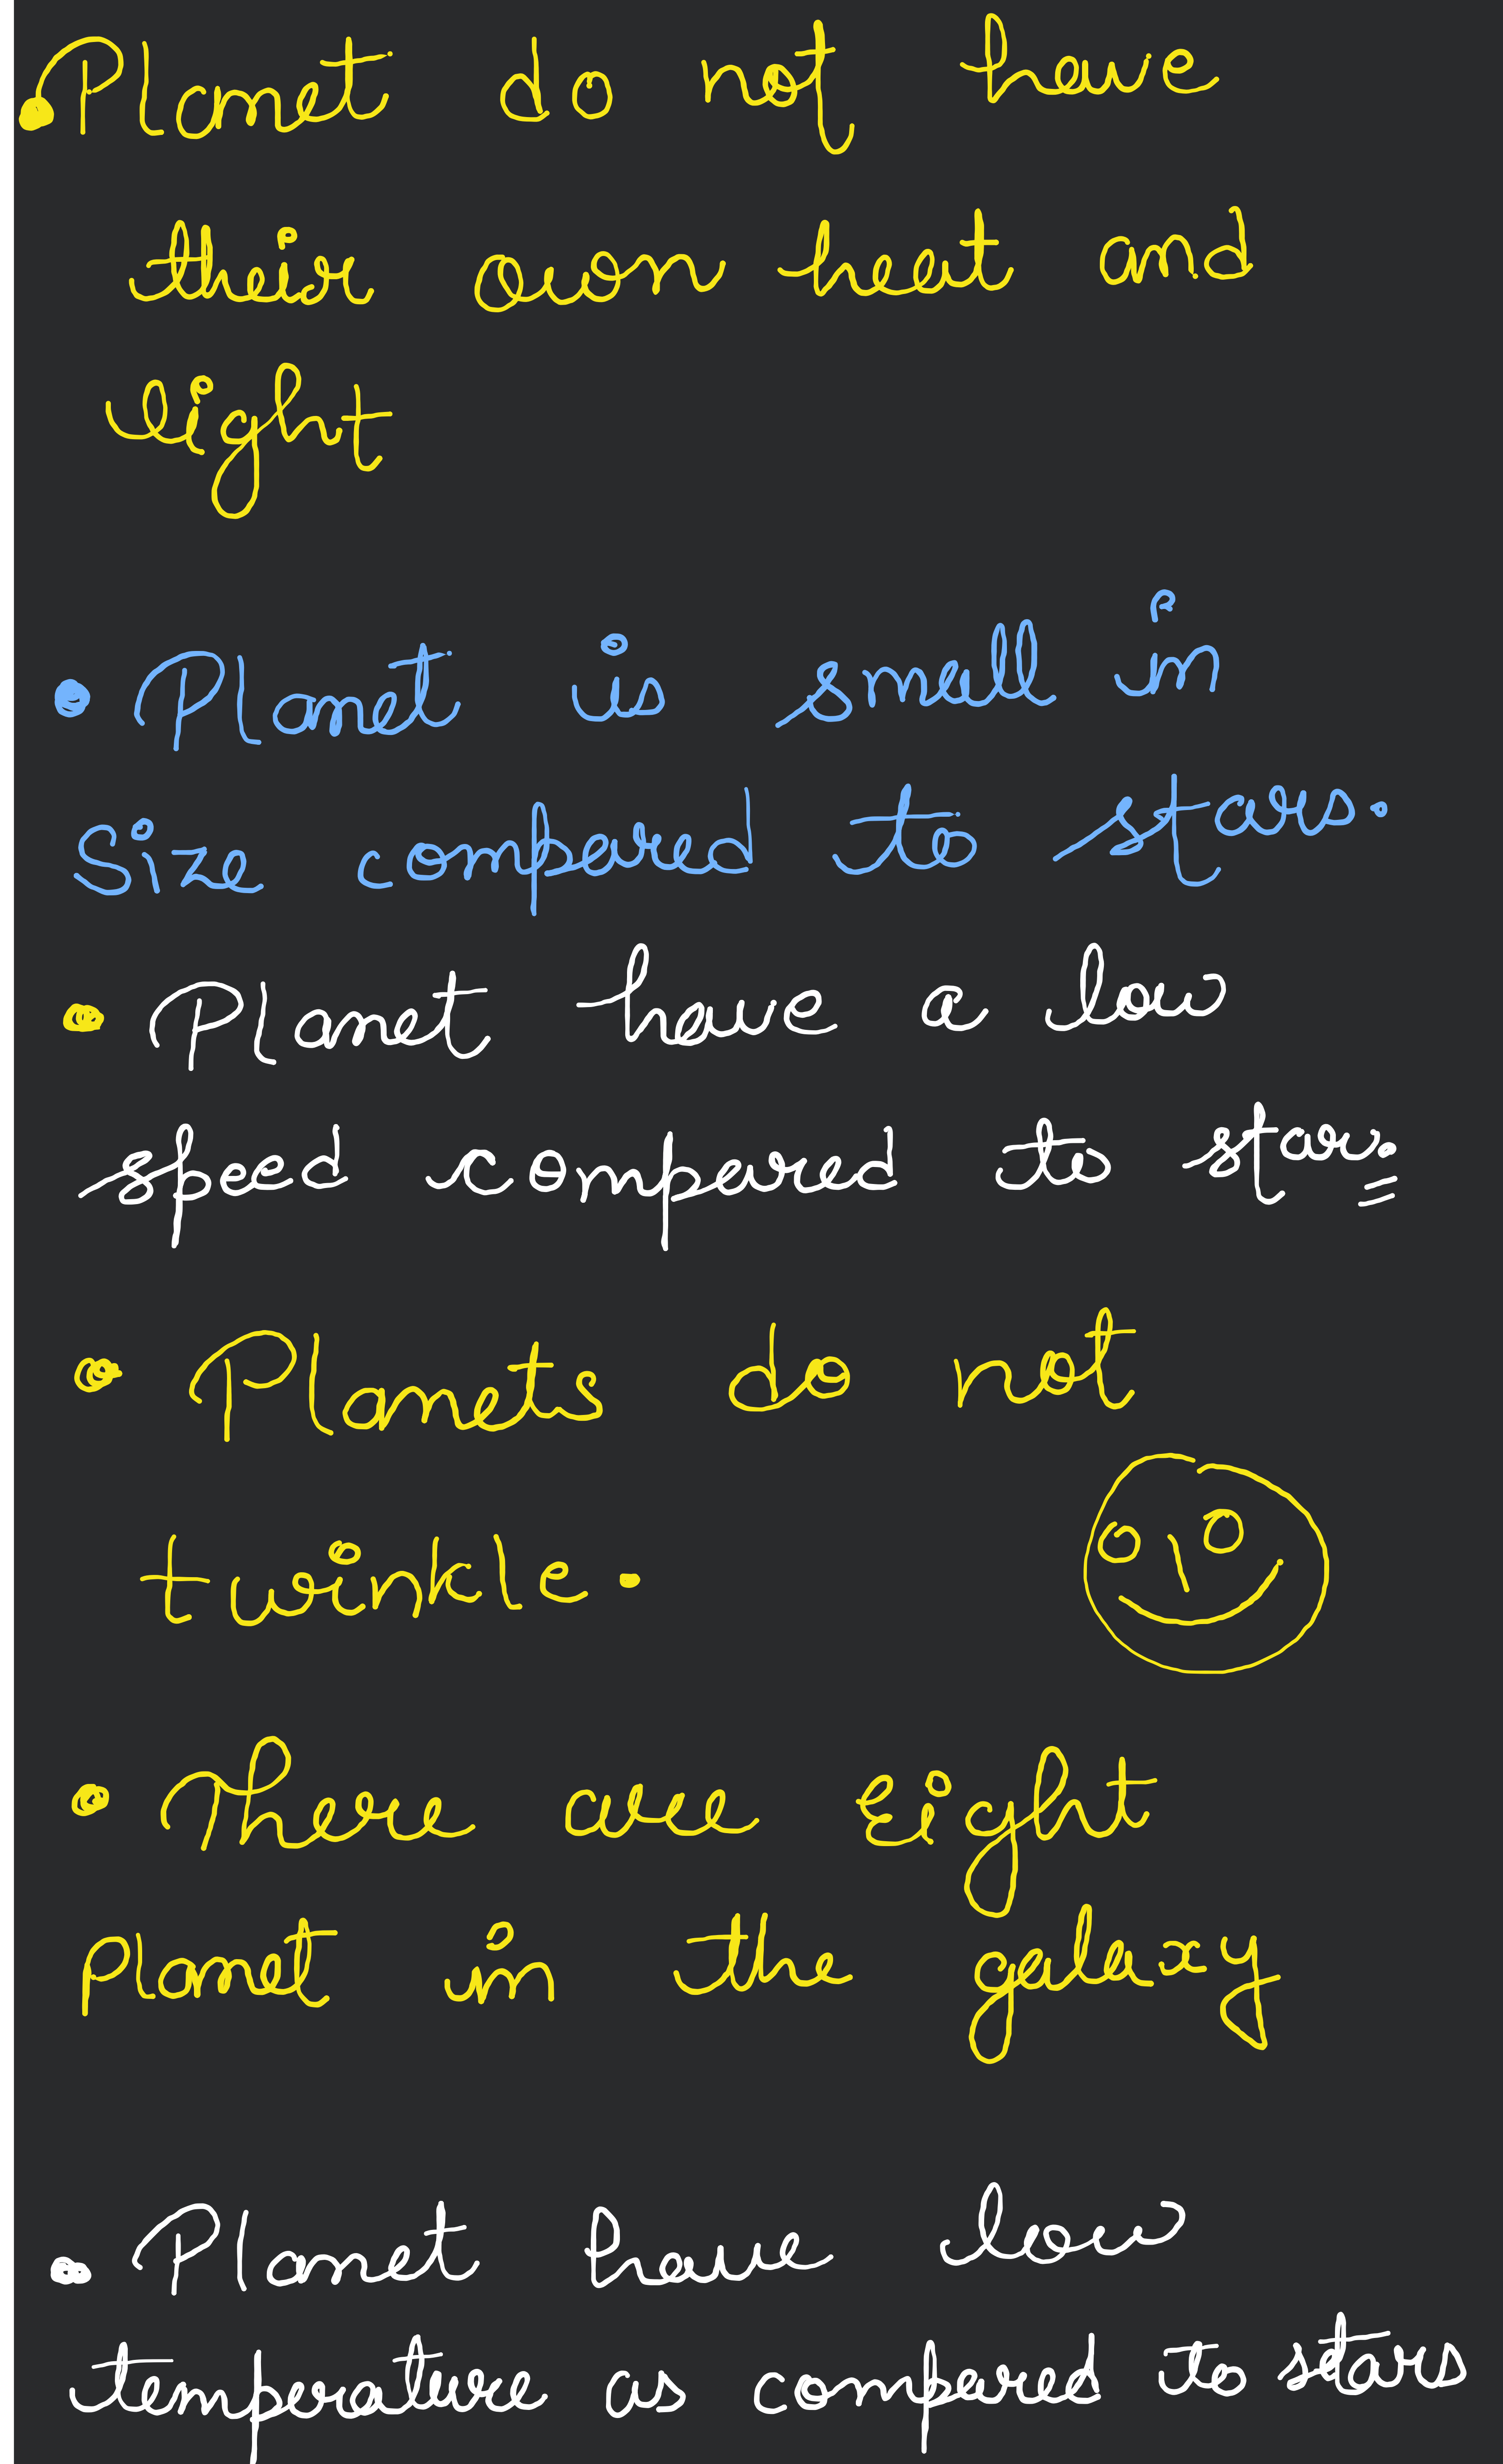 • Planet do not have
their own heat and
light
• Planet is small in
size compared to stars.
• Planet have a low
speed compared to star.
• Planets do not
twinkle.
• There are Eight
Planet in the galaxy
• Planet have low
temperature as compared to stars